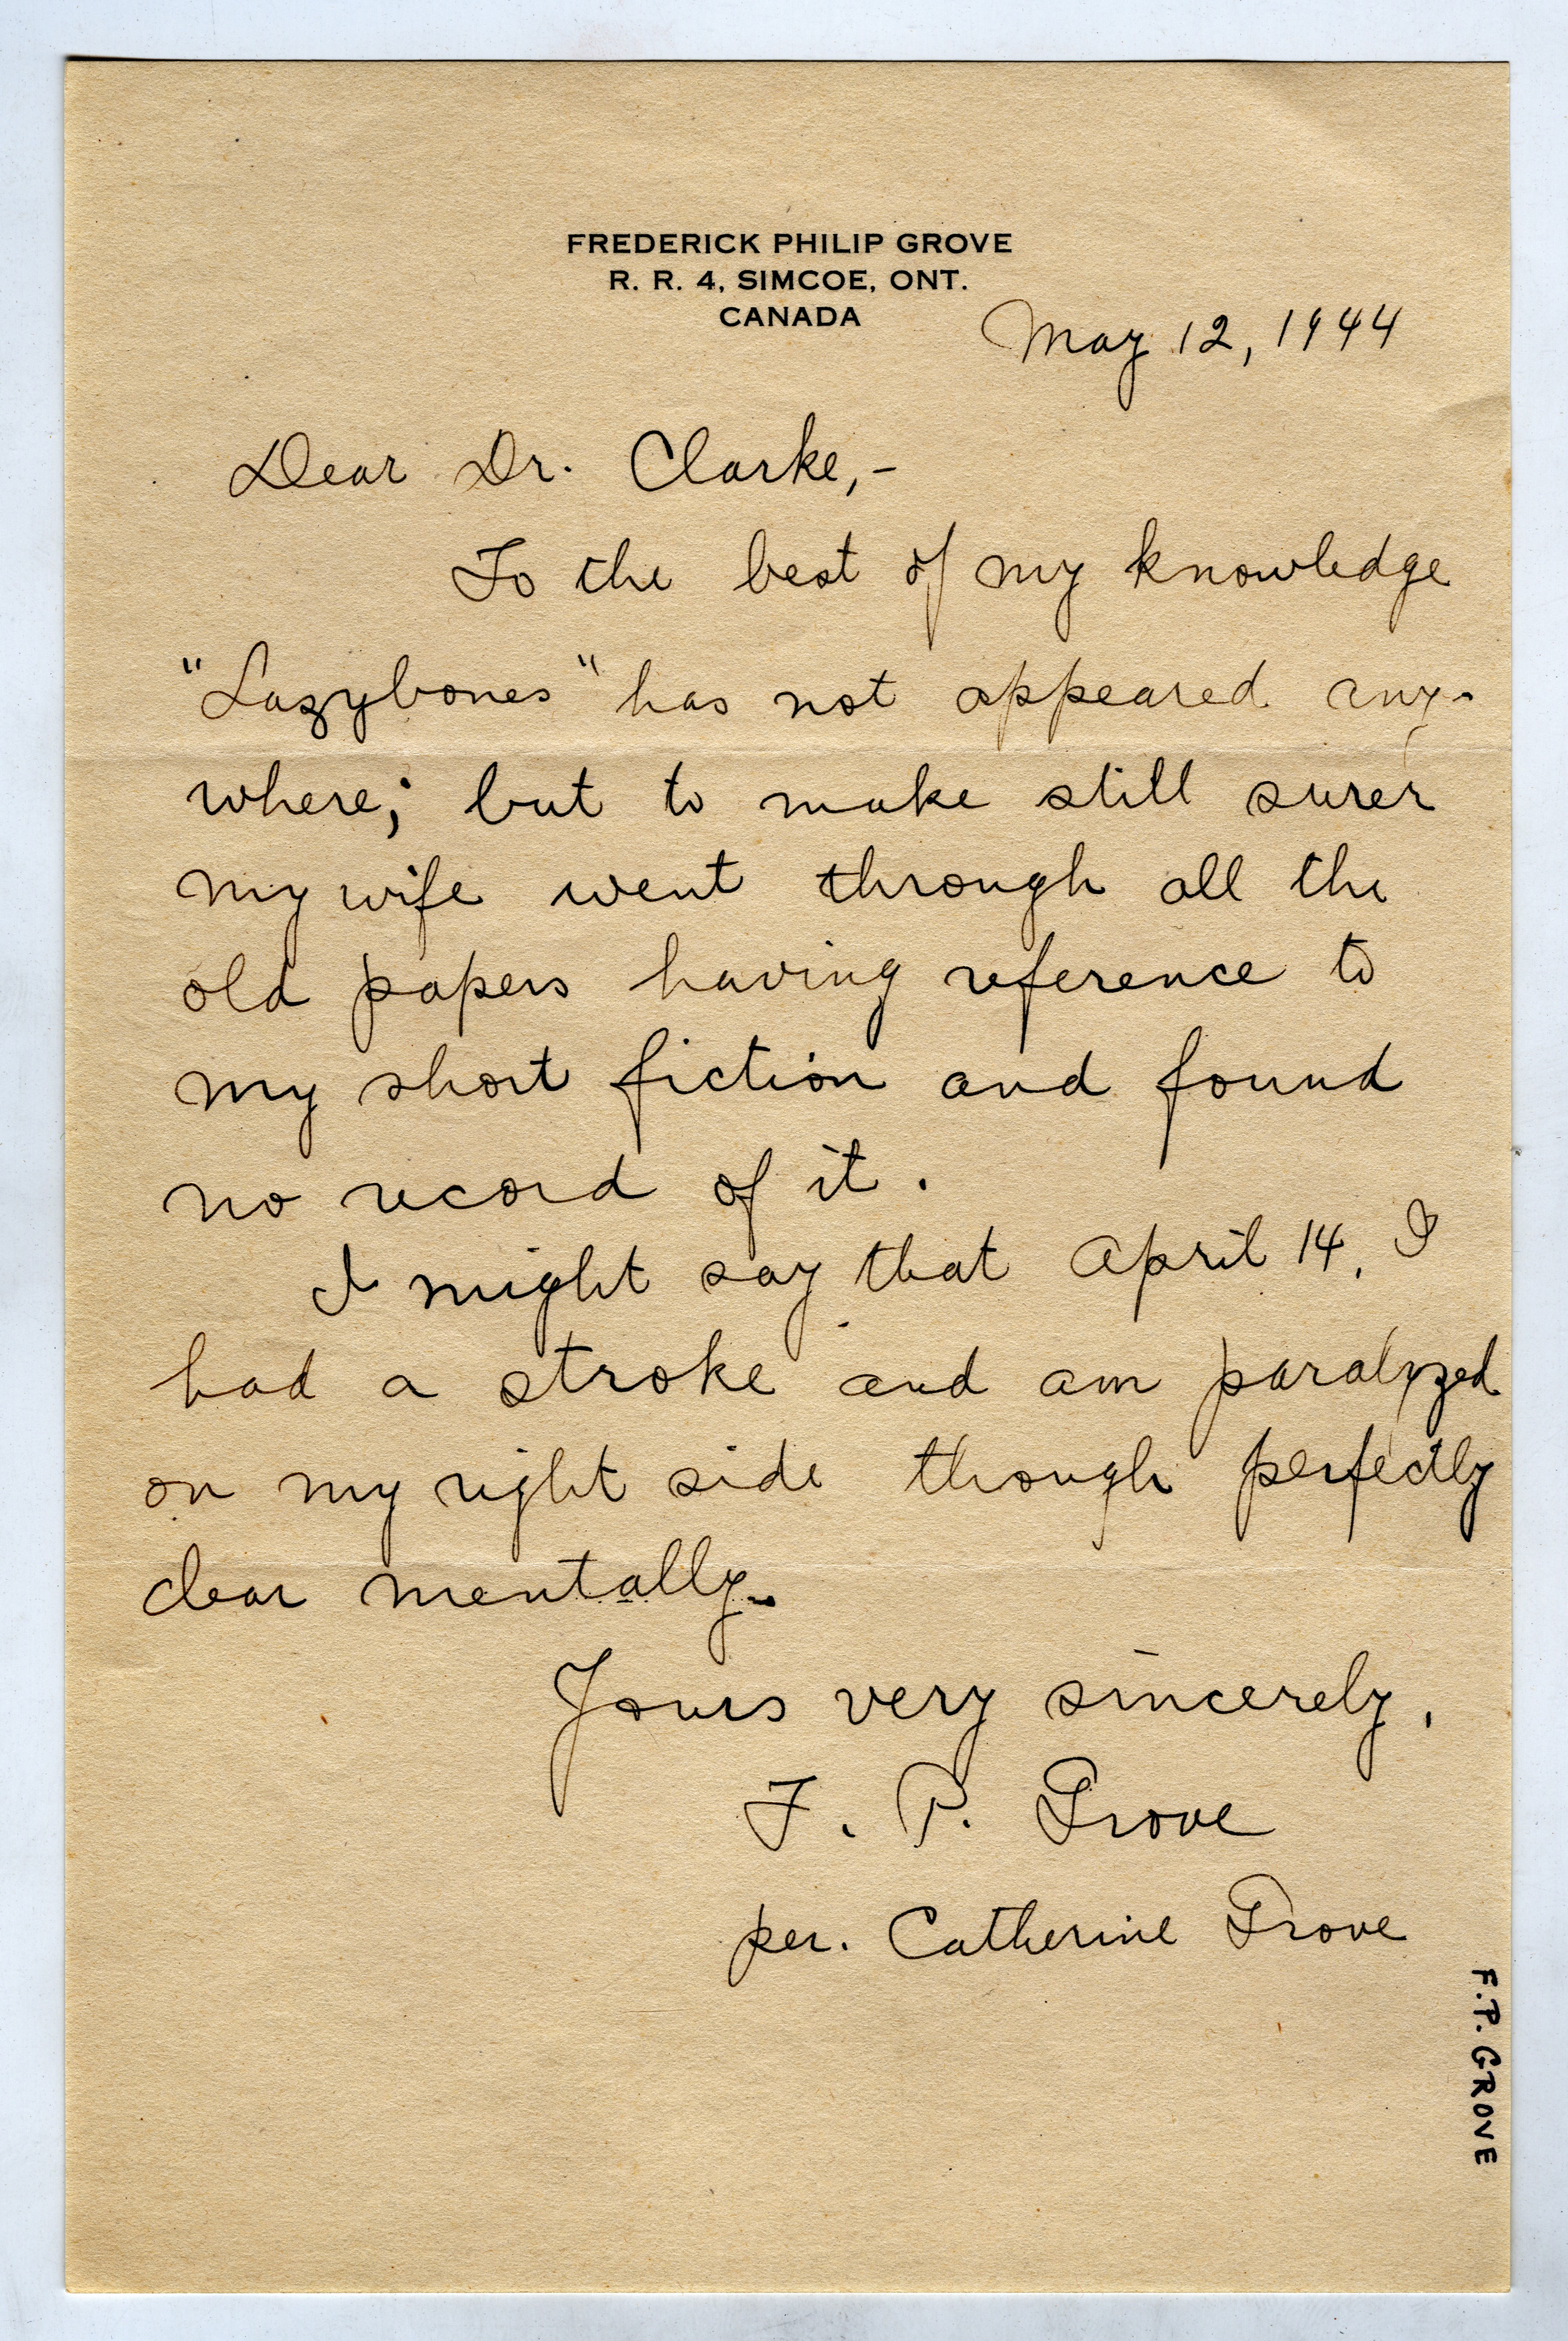 FREDERICK PHILIP GROVE
R. R. 4, SIMCOE, ONT.
CANADA
May 12, 1944
Dear Dr. Clarke,-
To the best of my knowledge
"Lazybones" has not appeared any-
where; but to make still surer
my wife went through all the
old papers having reference to
my short fiction and found
no record of it.
I might say that April 14, I
had a stroke and am paralyzed
on my right side though perfectly
clear mentally.
Yours very sincerely,
F. P. Grove
per. Catherine Grove
F.P. GROVE